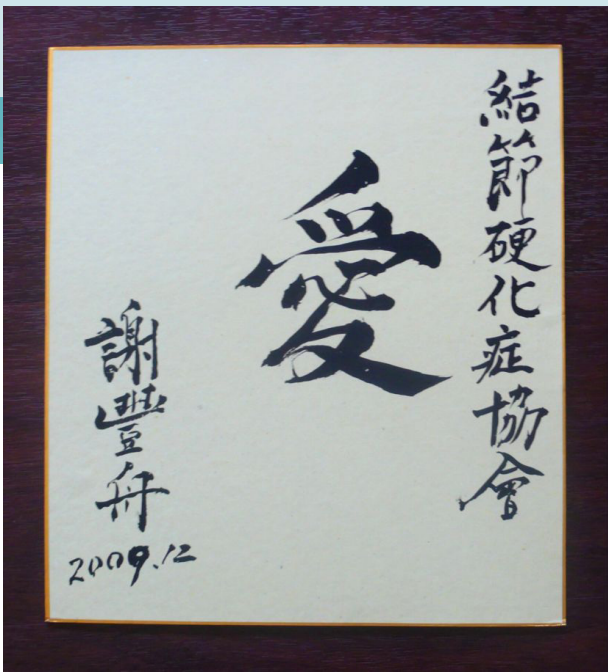 結節硬化症協會
愛
謝豐舟
2009.12